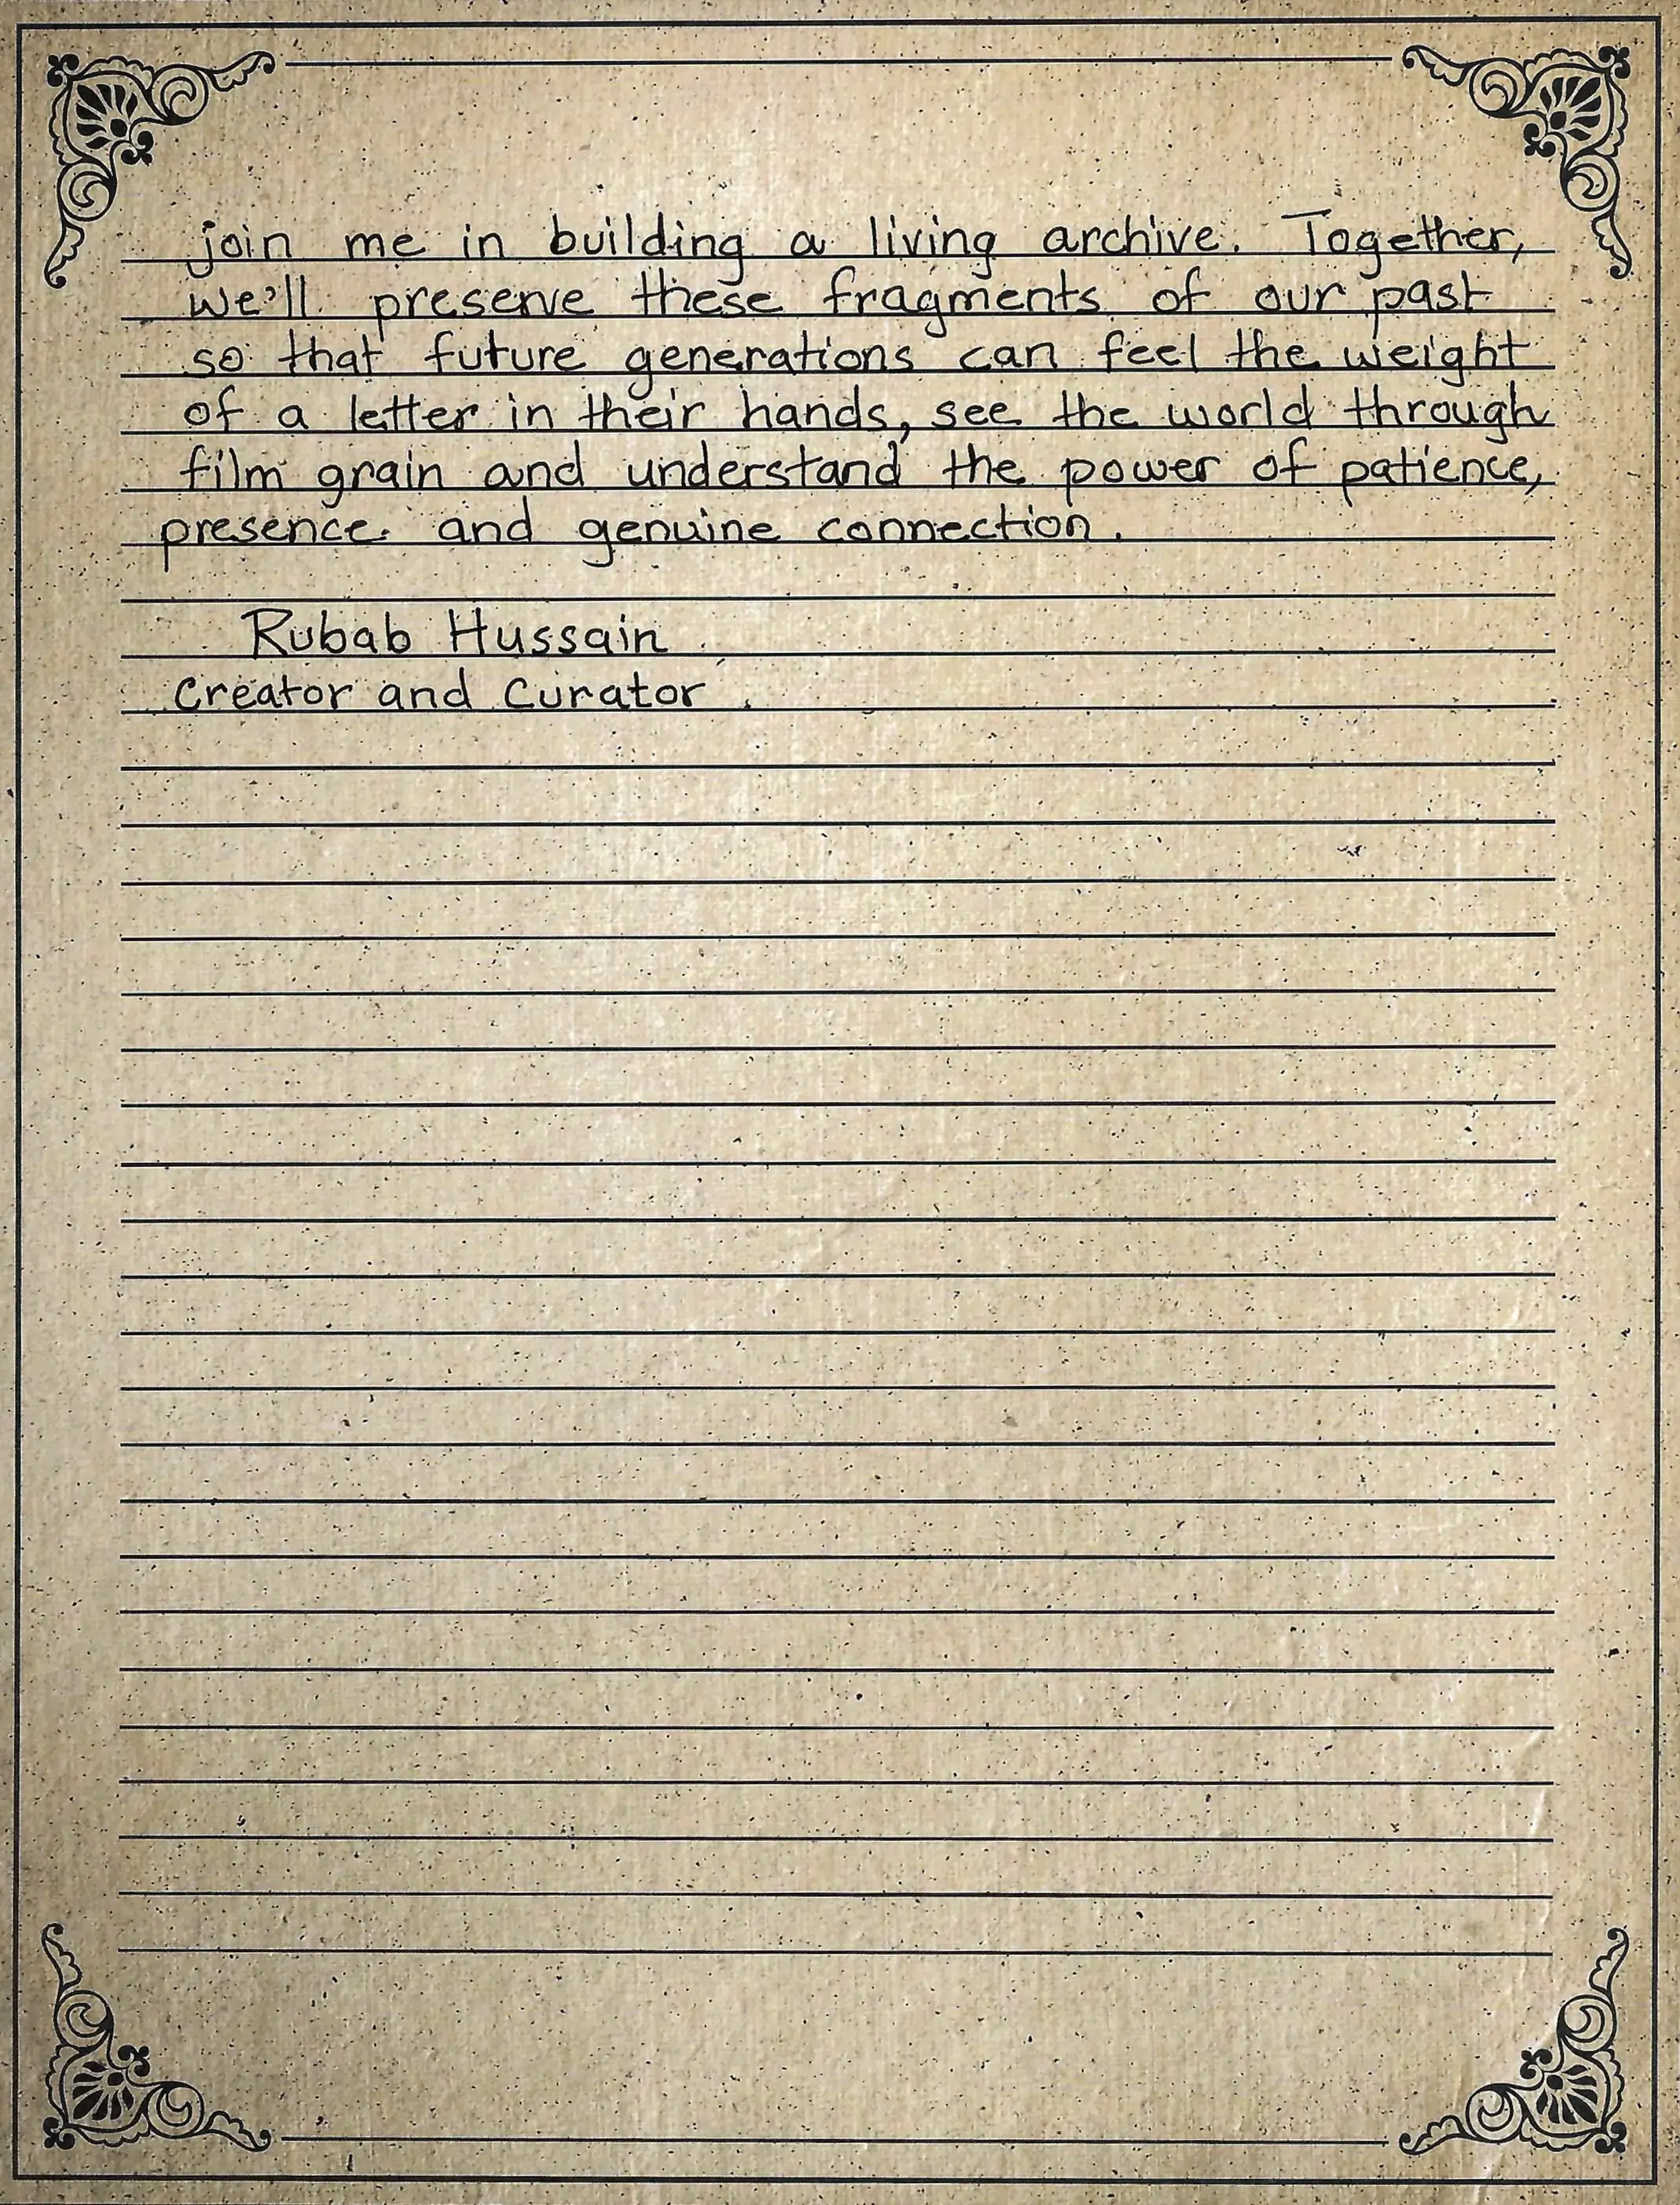 join me in building a living archive. Together,
we'll preserve these fragments of our past
so that future generations can feel the weight
of a letter in their hands, see the world through
film grain and understand the power of patience,
presence and genuine connection.
Rubab Hussain
Creator and Curator